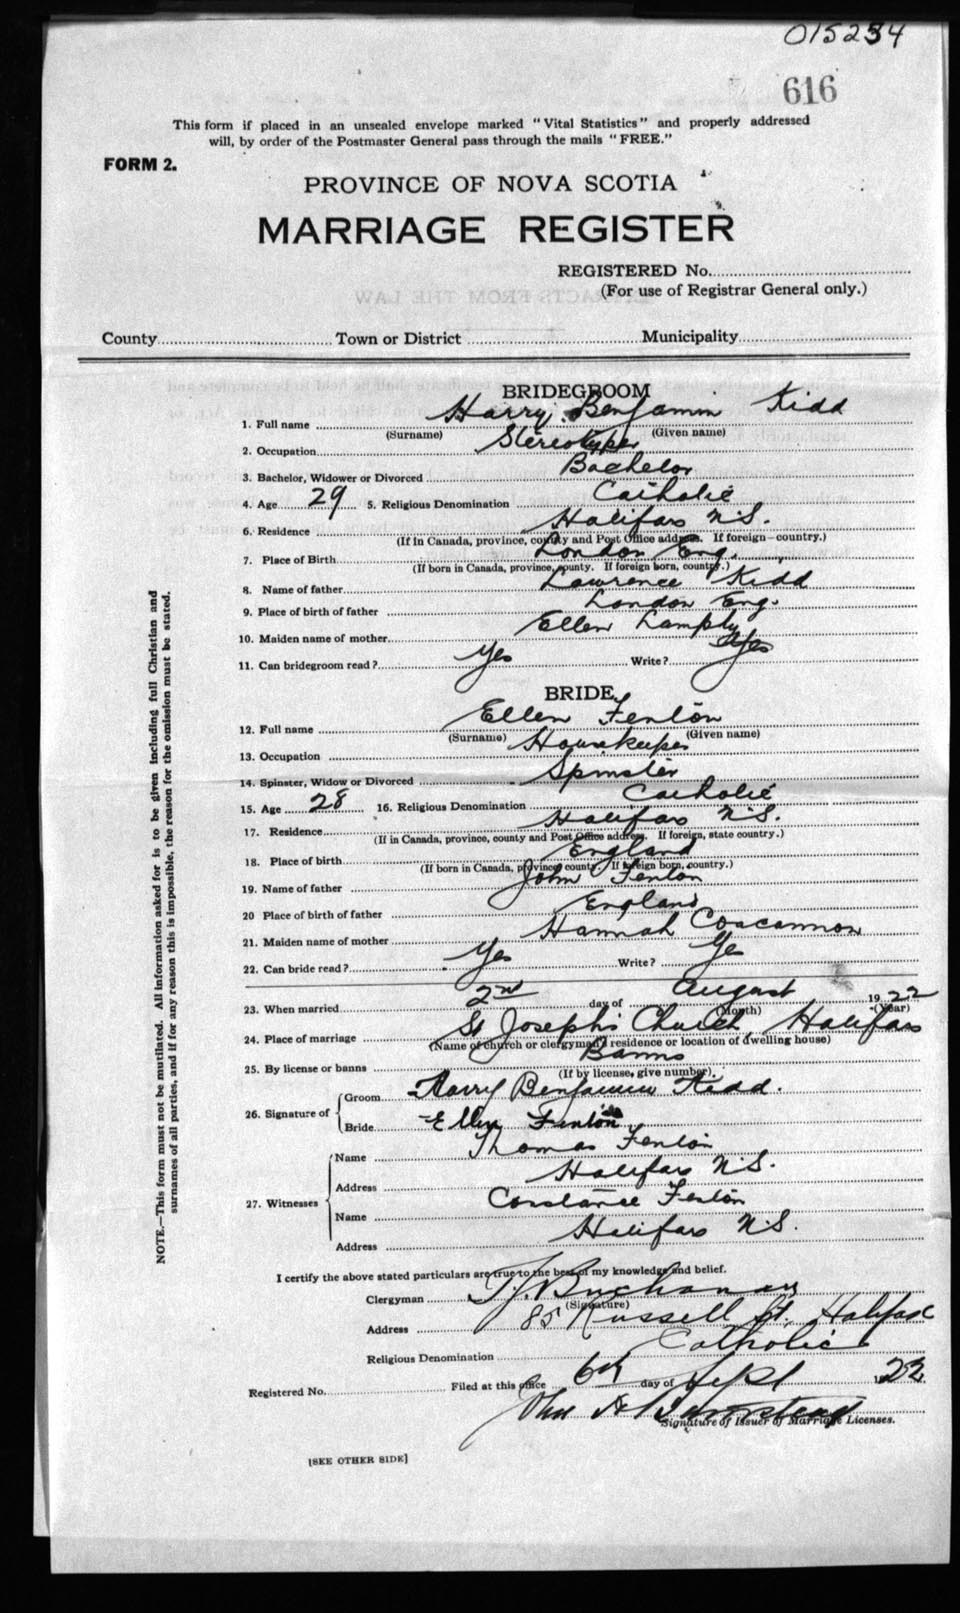 015234
616
This form if placed in an unsealed envelope marked "Vital Statistics" and properly addressed
will, by order of the Postmaster General pass through the mails "FREE."
FORM 2.
PROVINCE OF NOVA SCOTIA
MARRIAGE REGISTER
REGISTERED No.
(For use of Registrar General only.)
County Town or District Municipality
BRIDEGROOM
1. Full name Harry Benjamin Kidd
(Surname) (Given name)
2. Occupation Stereotyper
3. Bachelor, Widower or Divorced Bachelor
4. Age 29 5. Religious Denomination Catholic
6. Residence Halifax N.S.
(If in Canada, province, county and Post Office address. If foreign—country.)
7. Place of Birth London Eng.
(If born in Canada, province, county. If foreign born, country.)
8. Name of father Lawrence Kidd
9. Place of birth of father London Eng.
10. Maiden name of mother Ellen
11. Can bridegroom read? Yes Write? Yes
BRIDE
12. Full name Ellen Fenton
(Surname) (Given name)
13. Occupation Housekeeper
14. Spinster, Widow or Divorced Spinster
15. Age 28 16. Religious Denomination Catholic
17. Residence Halifax N.S.
(If in Canada, province, county and Post Office address. If foreign, state country.)
18. Place of birth England
(If born in Canada, province, county. If foreign born, country.)
19. Name of father John Fenton
20 Place of birth of father England
21. Maiden name of mother Hannah Concannon
22. Can bride read? Yes Write? Yes
23. When married 2nd day of August 1922
(Month) (Year)
24. Place of marriage St Joseph's Church, Halifax
(Name of church or clergyman's residence or location of dwelling house)
25. By license or banns Banns
(If by license, give number).
26. Signature of Groom Harry Benjamin Kidd.
Bride Ellen Fenton
27. Witnesses Name Thomas Fenton
Address Halifax N.S.
Name Constance Fenton
Address Halifax N.S.
I certify the above stated particulars are true to the best of my knowledge and belief.
Clergyman T.J. Buchanan
(Signature)
Address 85 Russell St. Halifax
Religious Denomination Catholic
Registered No. Filed at this office 6th day of Sept 1922
John H Barnstead
Signature of Issuer of Marriage Licenses.
[SEE OTHER SIDE]
NOTE.—This form must not be mutilated. All information asked for is to be given including full Christian and
surnames of all parties, and if for any reason this is impossible, the reason for the omission must be stated.